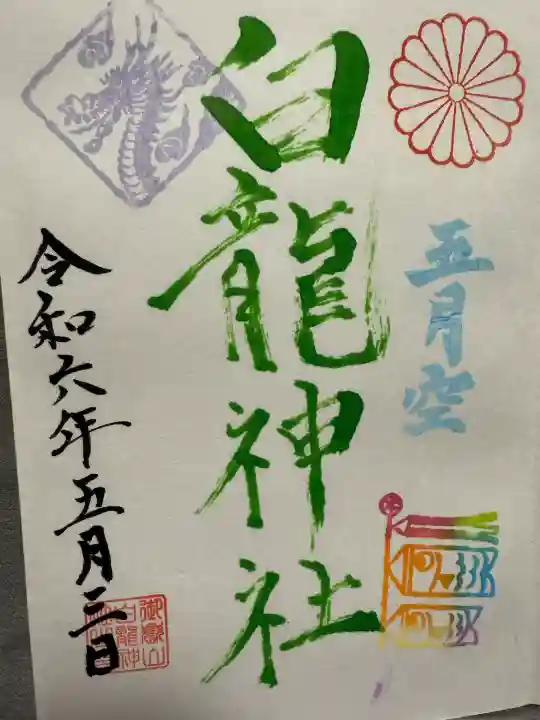 五月空
白龍神社
令和六年五月三日
御嶽山
白龍神